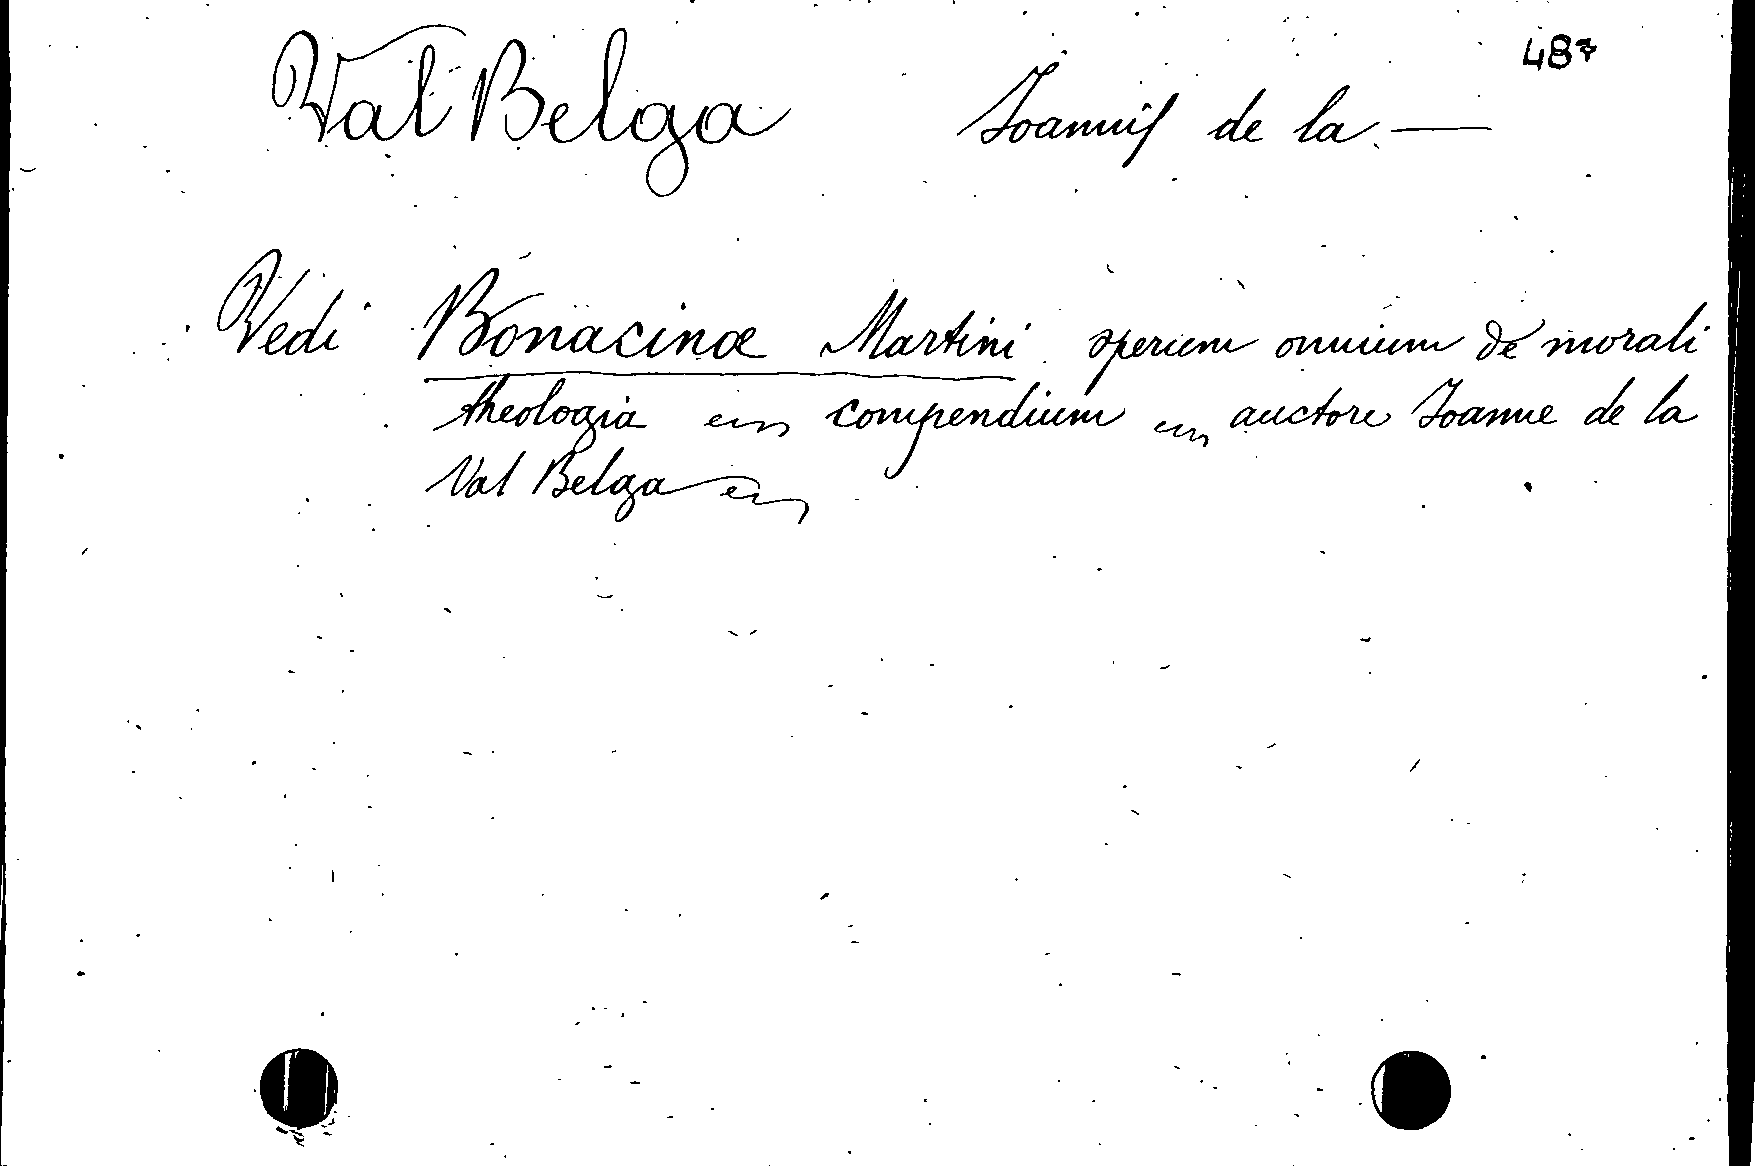 487
Val Belga Joannis de la —
Vedi Bonacinæ Martini operum omnium de morali
theologia ecc compendium ecc auctore Joanne de la
Val Belga ecc